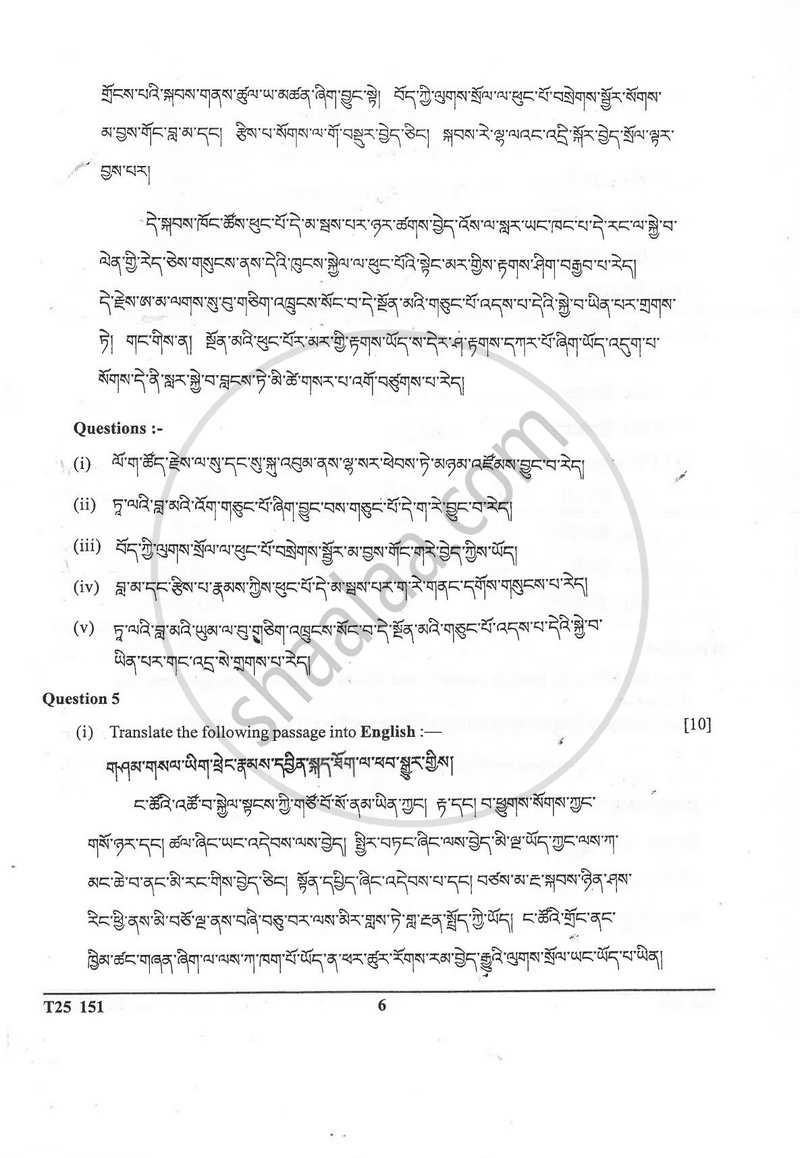 གྲོངས་པའི་སྐབས་གནས་ཚུལ་ཡ་མཚན་ཞིག་བྱུང་སྟེ། བོད་ཀྱི་ལུགས་སྲོལ་ལ་ཕུང་པོ་བསྲེགས་སྦྱོར་སོགས་
མ་བྱས་གོང་བླ་མ་དང། རྩིས་པ་སོགས་ལ་གོ་བསྡུར་བྱེད་ཅིང། སྐབས་རེ་ལྷ་ལའང་འདྲི་སྐོར་བྱེད་སྲོལ་ལྟར་
བྱས་པར།
དེ་སྐབས་ཁོང་ཚོས་ཕུང་པོ་དེ་མ་སྦས་པར་ཉར་ཚགས་བྱེད་འོས་ལ་སླར་ཡང་ཁང་པ་དེ་རང་ལ་སྐྱེ་བ་
ལེན་གྱི་རེད་ཅེས་གསུངས་ནས་དེའི་ཁུངས་སྐྱེལ་ལ་ཕུང་པོའི་སྟེང་མར་གྱིས་རྟགས་ཤིག་བརྒྱབ་པ་རེད།
དེ་རྗེས་ཨ་མ་ལགས་སུ་བུ་གཅིག་འཁྲུངས་སོང་བ་དེ་སྔོན་མའི་གཅུང་པོ་འདས་པ་དེའི་སྐྱེ་བ་ཡིན་པར་གྲགས་
ཏེ། གང་གིས་ན། སྔོན་མའི་ཕུང་པོར་མར་གྱི་རྟགས་ཡོད་ས་དེར་ཤ་རྟགས་དཀར་པོ་ཞིག་ཡོད་འདུག་པ་
སོགས་དེ་ནི་སླར་སྐྱེ་བ་བླངས་ཏེ་མི་ཚེ་གསར་པ་འགོ་བཙུགས་པ་རེད།
Questions :-
(i) ལོ་ག་ཚོད་རྗེས་ལ་སུ་དང་སུ་སྐུ་འབུམ་ནས་ལྷ་སར་ཕེབས་ཏེ་མཉམ་འཛོམས་བྱུང་བ་རེད།
(ii) ཏཱ་ལའི་བླ་མའི་འོག་གཅུང་པོ་ཞིག་བྱུང་བས་གཅུང་པོ་དེ་ག་རེ་བྱུང་བ་རེད།
(iii) བོད་ཀྱི་ལུགས་སྲོལ་ལ་ཕུང་པོ་བསྲེགས་སྦྱོར་མ་བྱས་གོང་གརེ་བྱེད་ཀྱིས་ཡོད།
(iv) བླ་མ་དང་རྩིས་པ་རྣམས་ཀྱིས་ཕུང་པོ་དེ་མ་སྦས་པར་ག་རེ་གནང་དགོས་གསུངས་པ་རེད།
(v) ཏཱ་ལའི་བླ་མའི་ཡུམ་ལ་བུ་གཅིག་འཁྲུངས་སོང་བ་དེ་སྔོན་མའི་གཅུང་པོ་འདས་པ་དེའི་སྐྱེ་བ་
ཡིན་པར་གང་འདྲ་སེ་གྲགས་པ་རེད།
Question 5
(i) Translate the following passage into English :— [10]
གཤམ་གསལ་ཡིག་ཕྲེང་རྣམས་དབྱིན་སྐད་ཐོག་ལ་ཕབ་སྒྱུར་གྱིས།
ང་ཚོའི་འཚོ་བ་སྐྱེལ་སྟངས་ཀྱི་གཙོ་བོ་སོ་ནམ་ཡིན་ཀྱང། རྟ་དང། བ་ཕྱུགས་སོགས་ཀྱང་
གསོ་ཉར་དང། ཚལ་ཞིང་ཡང་འདེབས་ལས་བྱེད། སྤྱིར་བཏང་ཞིང་ལས་བྱེད་མི་ལྔ་ཡོད་ཀྱང་ལས་ཀ་
མང་ཆེ་བ་ནང་མི་རང་གིས་བྱེད་ཅིང། སྟོན་དཔྱིད་ཞིང་འདེབས་པ་དང། བཙས་མ་རྔ་སྐབས་ཉིན་ཤས་
རིང་ཕྱི་ནས་མི་བཅོ་ལྔ་ནས་བཞི་བཅུ་བར་ལས་མིར་གླས་ཏེ་གླ་རྔན་སྤྲོད་ཀྱི་ཡོད། ང་ཚོའི་གྲོང་ནང་
ཁྱིམ་ཚང་གཞན་ཞིག་ལ་ལས་ཀ་ཁག་པོ་ཡོད་ན་ཕར་ཚུར་རོགས་རམ་བྱེད་རྒྱུའི་ལུགས་སྲོལ་ཡང་ཡོད་པ་ཡིན།
T25 151 6
shaalaa.com